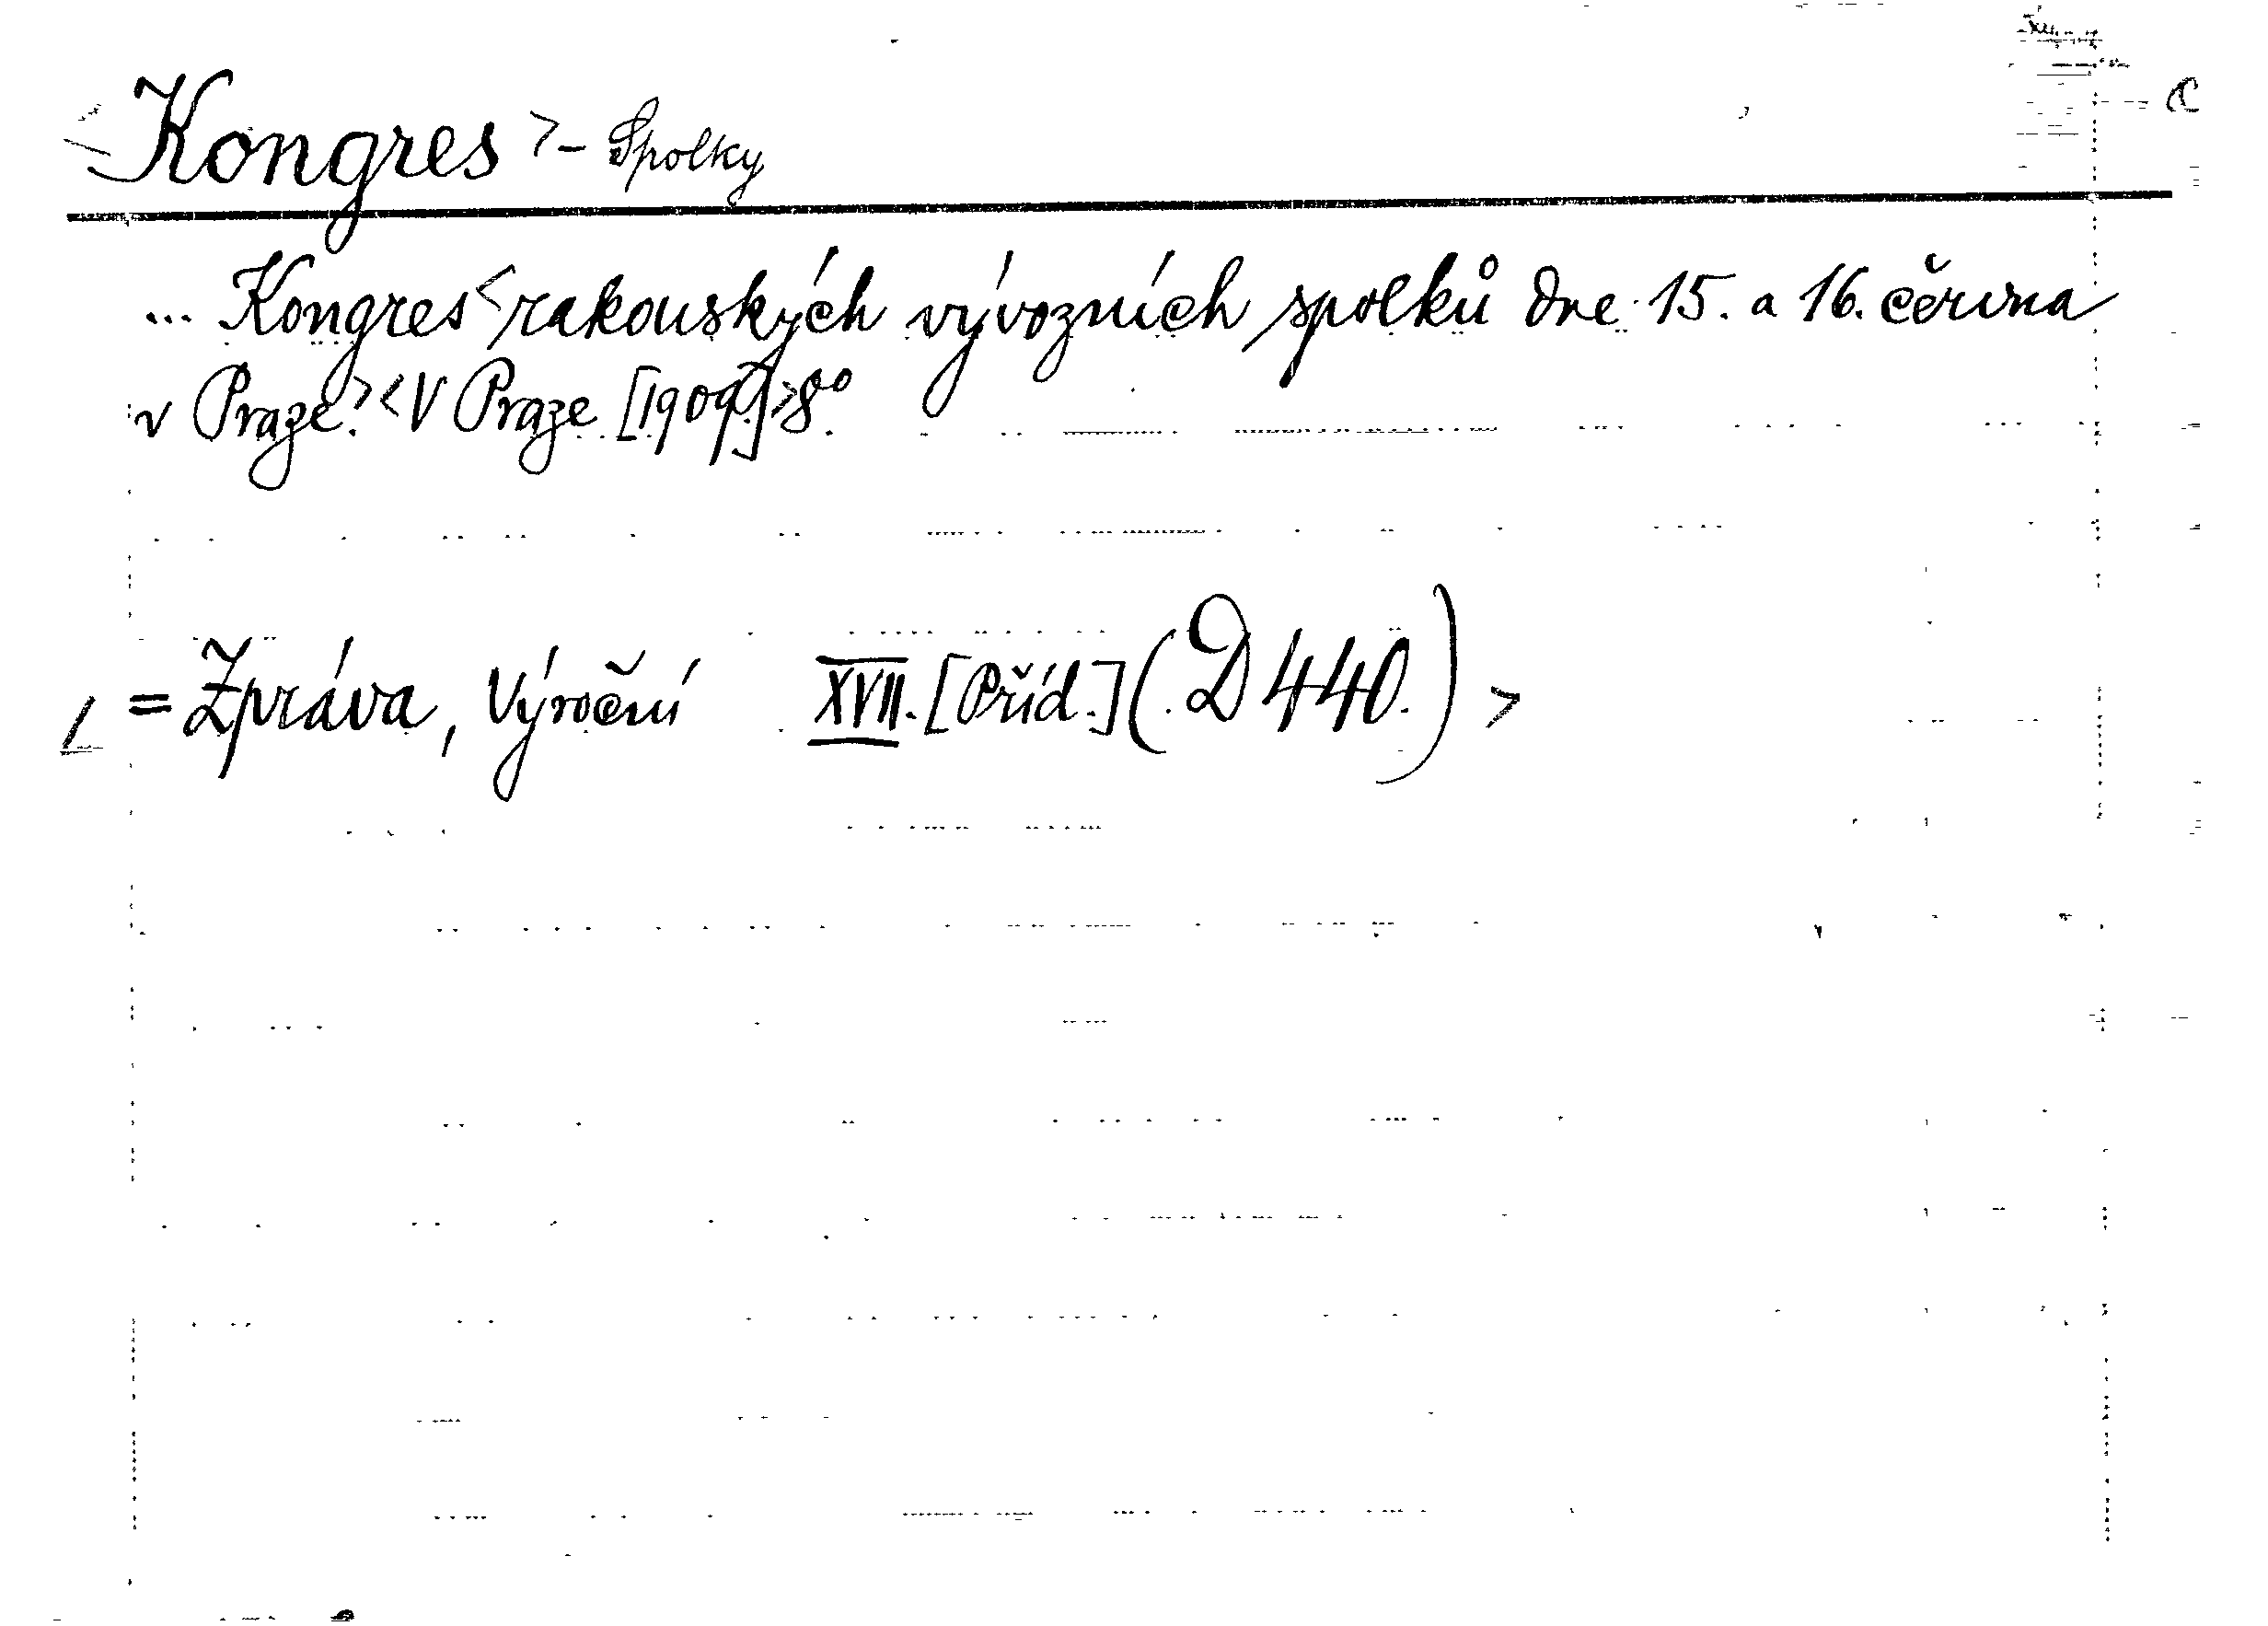 Kongres >- Spolky
... Kongres < rakouských vývozních spolků dne 15. a 16. června
v Praze. > < V Praze [1909] > 8°.
= Zpráva, Výroční XVII. [Příd.] (D 440.) >